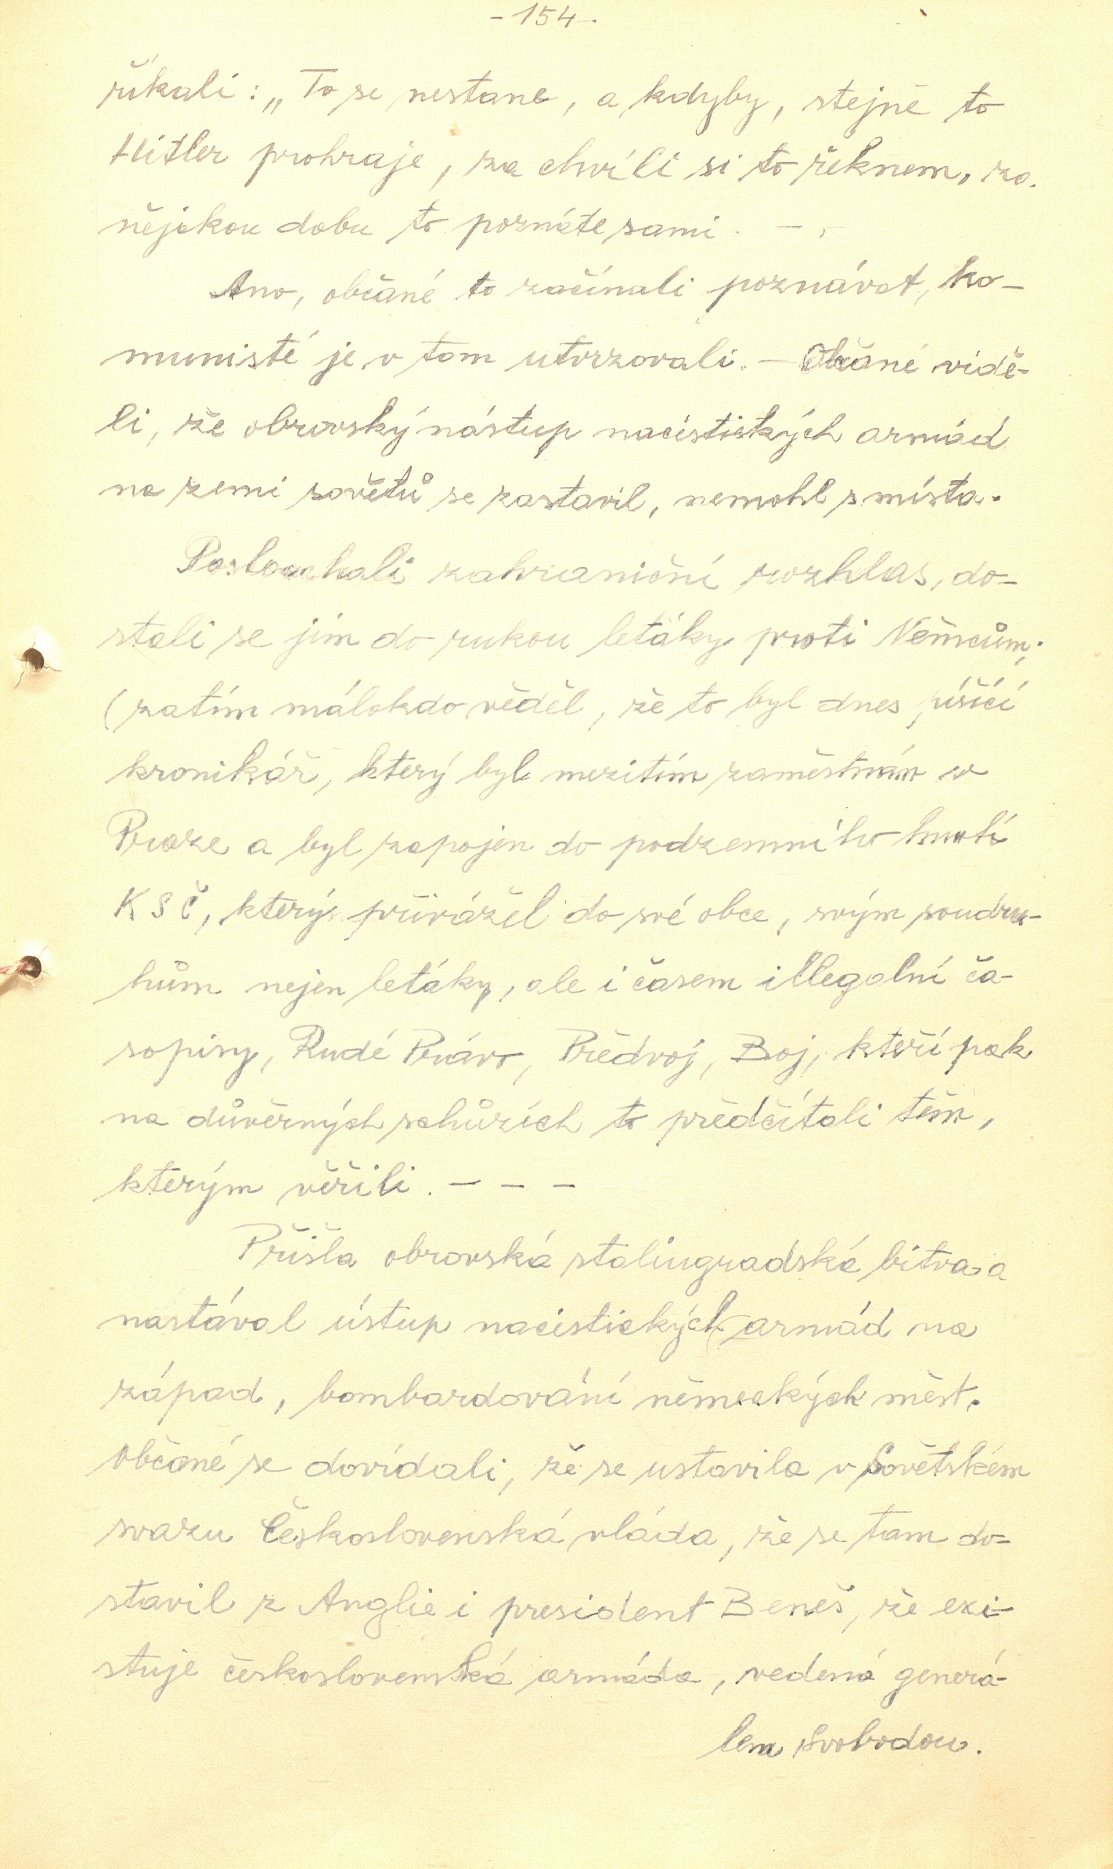 - 154 -.
říkali: „To se nestane, a kdyby, stejně to
Hitler prohraje, za chvíli si to řeknem, za
nějakou dobu to poznáte sami. - .
Ano, občané to začínali poznávat, ko-
munisté je v tom utvrzovali. - Občané vidě-
li, že obrovský nástup nacistických armád
na zemi sovětů se zastavil, nemohl s místa.
Poslouchali zahraniční rozhlas, do-
stali se jim do rukou letáky proti Němcům;
(zatím málokdo věděl, že to byl dnes píšící
kronikář, který byl mezitím zaměstnán v
Praze a byl zapojen do podzemního hnutí
KSČ, který přivážel do své obce, svým soudru-
hům nejen letáky, ale i časem illegalní ča-
sopisy, Rudé Právo, Předvoj, Boj, kteří pak
na důvěrných schůzích to předčítali těm,
kterým věřili. - - -
Přišla obrovská stalingradská bitva a
nastával ústup nacistických armád na
západ, bombardování německých měst.
Občané se dovídali, že se ustavila v Sovětském
svazu Československá vláda, že se tam do-
stavil z Anglie i president Beneš, že exi-
stuje československá armáda, vedená generá-
lem Svobodou.